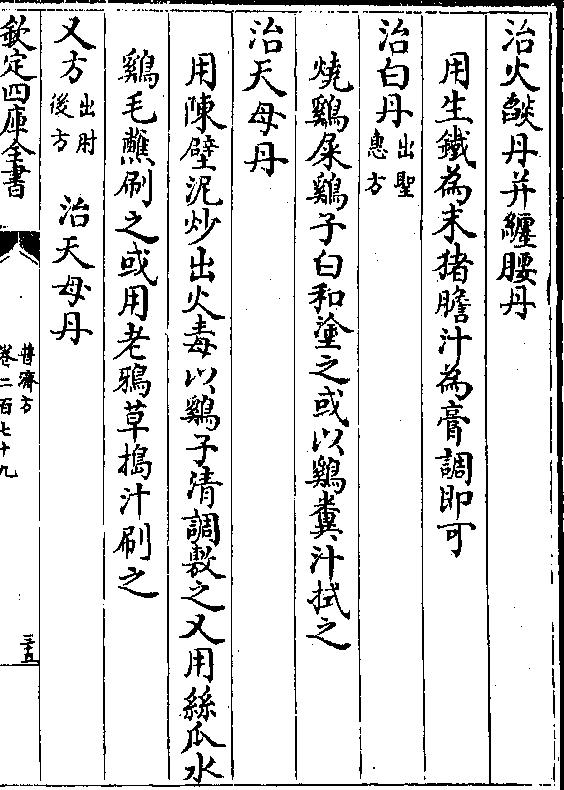 治火燄丹并纏腰丹
用生鐵為末猪膽汁為膏調即可
治白丹出聖惠方
燒鷄屎鷄子白和塗之或以鷄糞汁拭之
治天母丹
用陳壁泥炒出火毒以鷄子清調敷之又用絲瓜水
鷄毛蘸刷之或用老鴉草搗汁刷之
又方出肘後方　治天母丹
欽定四庫全書
普濟方
卷二百七十九
三五